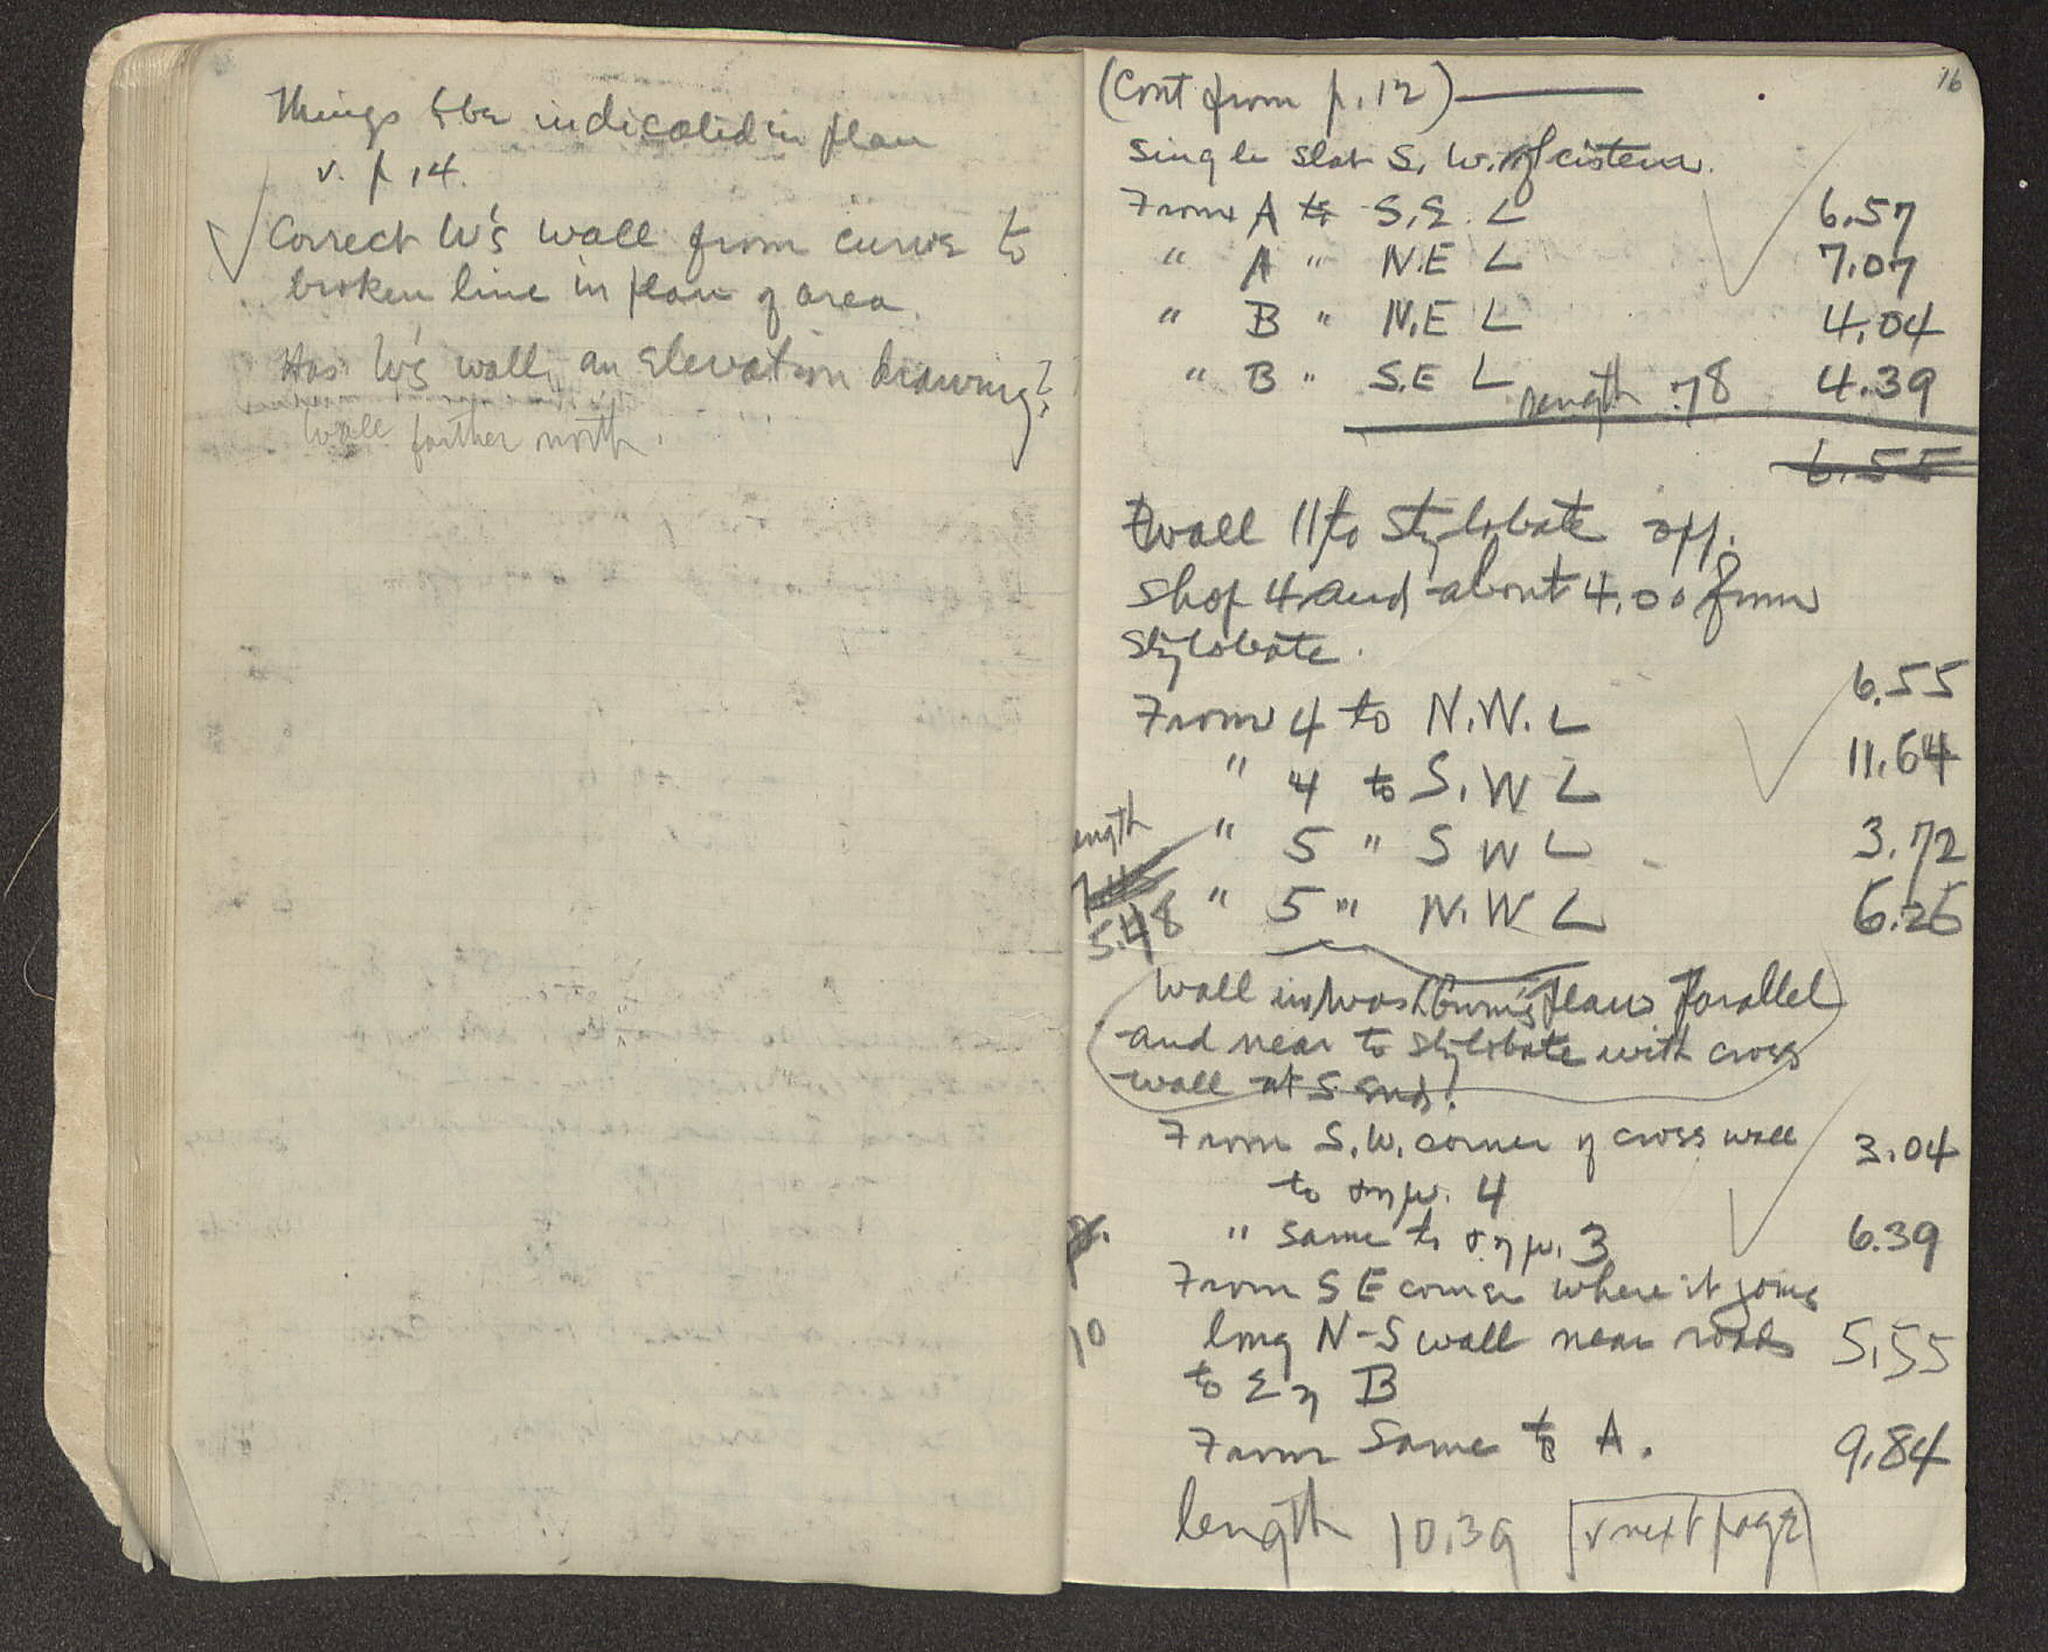 Things to be indicated in plan
v. p 14.
Correct W's wall from curve to
broken line in plan of area.
Has W's wall, an elevation drawing?
wall farther north.
16
(Cont from p. 12)
Single slab S. W. of cistern.
From A to S.E. L 6.57
" A " N.E L 7.07
" B " N.E L 4.04
" B " S.E L length .78 4.39
6.55
wall || to stylobate opp.
shop 4 and about 4.00 from
stylobate.
From 4 to N.W. L 6.55
" 4 to S.W L 11.64
" 5 " S W L 3.72
" 5 " N.W L 6.26
length
5.48
Wall in Washburn's plan parallel
and near to stylobate with cross
wall at S end!
From S.W. corner of cross wall 3.04
to σημ. 4
" same to σημ. 3 6.39
From S E corner where it joins
10
long N-S wall near road 5.55
to Σ η B
From same to A. 9.84
length 10.39 [v next page]